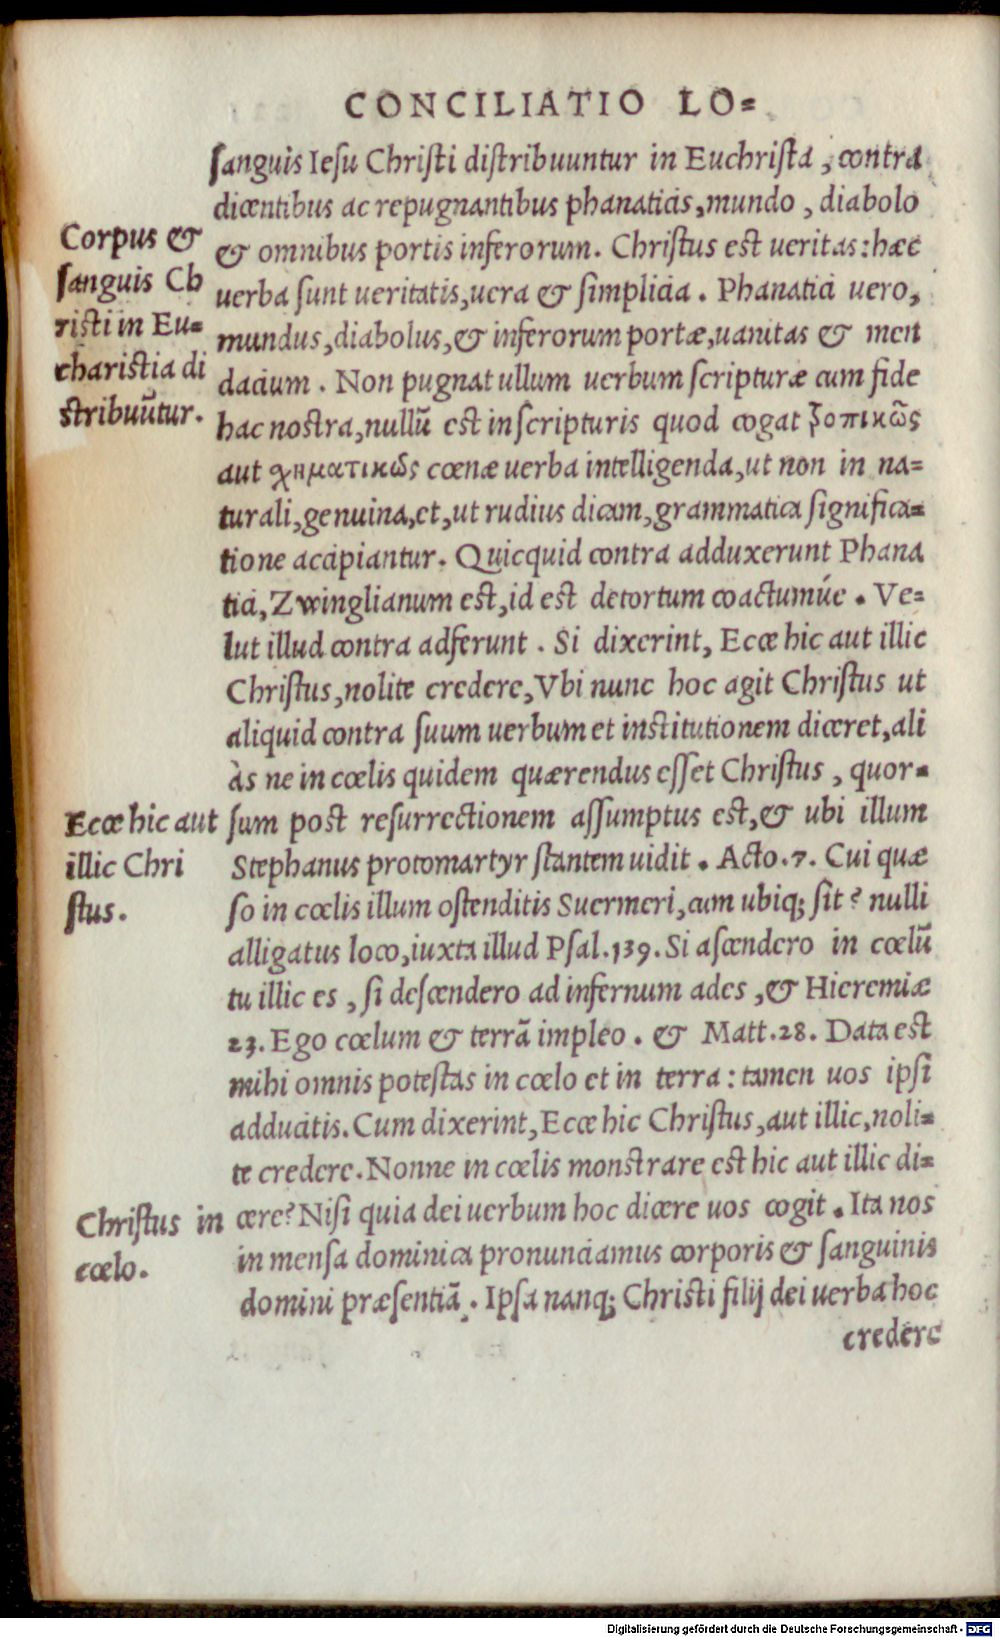 CONCILIATIO LO=
sanguis Iesu Christi distribuuntur in Euchrista, contra
dicentibus ac repugnantibus phanaticis, mundo, diabolo
& omnibus portis inferorum. Christus est ueritas: hæc
uerba sunt ueritatis, uera & simplicia. Phanatici uero,
mundus, diabolus, & inferorum portæ, uanitas & men
dacium. Non pugnat ullum uerbum scripturæ cum fide
hac nostra, nullū est in scripturis quod cogat τροπικῶς
aut σχηματικῶς cœnæ uerba intelligenda, ut non in na=
turali, genuina, et, ut rudius dicam, grammatica significa=
tione accipiantur. Quicquid contra adduxerunt Phana
tici, Zwinglianum est, id est detortum coactumúe. Ve=
lut illud contra adferunt. Si dixerint, Ecce hic aut illic
Christus, nolite credere, Vbi nunc hoc agit Christus ut
aliquid contra suum uerbum et institutionem diceret, ali
às ne in cœlis quidem quærendus esset Christus, quor=
sum post resurrectionem assumptus est, & ubi illum
Stephanus protomartyr stantem uidit. Acto. 7. Cui quæ
so in cœlis illum ostenditis Suermeri, cum ubiq; sit? nulli
alligatus loco, iuxta illud Psal. 139. Si ascendero in cœlū
tu illic es, si descendero ad infernum ades, & Hieremiæ
23. Ego cœlum & terrā impleo. & Matt. 28. Data est
mihi omnis potestas in cœlo et in terra: tamen uos ipsi
adducitis. Cum dixerint, Ecce hic Christus, aut illic, noli=
te credere. Nonne in cœlis monstrare est hic aut illic di=
cere? Nisi quia dei uerbum hoc dicere uos cogit. Ita nos
in mensa dominica pronunciamus corporis & sanguinis
domini præsentiā. Ipsa nanq; Christi filij dei uerba hoc
credere
Corpus &
sanguis Ch
risti in Eu=
charistia di
stribuūtur.
Ecce hic aut
illic Chri
stus.
Christus in
cœlo.
Digitalisierung gefördert durch die Deutsche Forschungsgemeinschaft - DFG